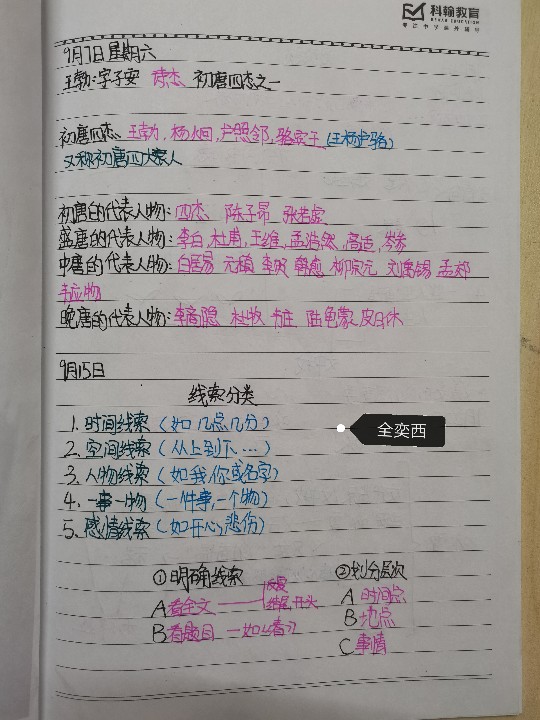 科翰教育
9月7日 星期六
王勃:字子安 诗杰 初唐四杰之一
初唐四杰 王勃,杨炯,卢照邻,骆宾王(王杨卢骆)
又称初唐四大家人
初唐的代表人物:四杰 陈子昂 张若虚
盛唐的代表人物:李白,杜甫,王维,孟浩然,高适,岑参
中唐的代表人物:白居易 元稹 李贺 韩愈 柳宗元 刘禹锡 孟郊
韦应物
晚唐的代表人物:李商隐 杜牧 韦庄 陆龟蒙 皮日休
9月15日
线索分类
1.时间线索(如几点几分)
2.空间线索(从上到下…)
全奕西
3.人物线索(如我,你或名字)
4.一事一物(一件事,一个物)
5.感情线索(如开心,悲伤)
①明确线索 ②划分层次
A看全文 反复 A 时间点
结尾 开头 B 地点
B看题目 一如《春》 C 事情